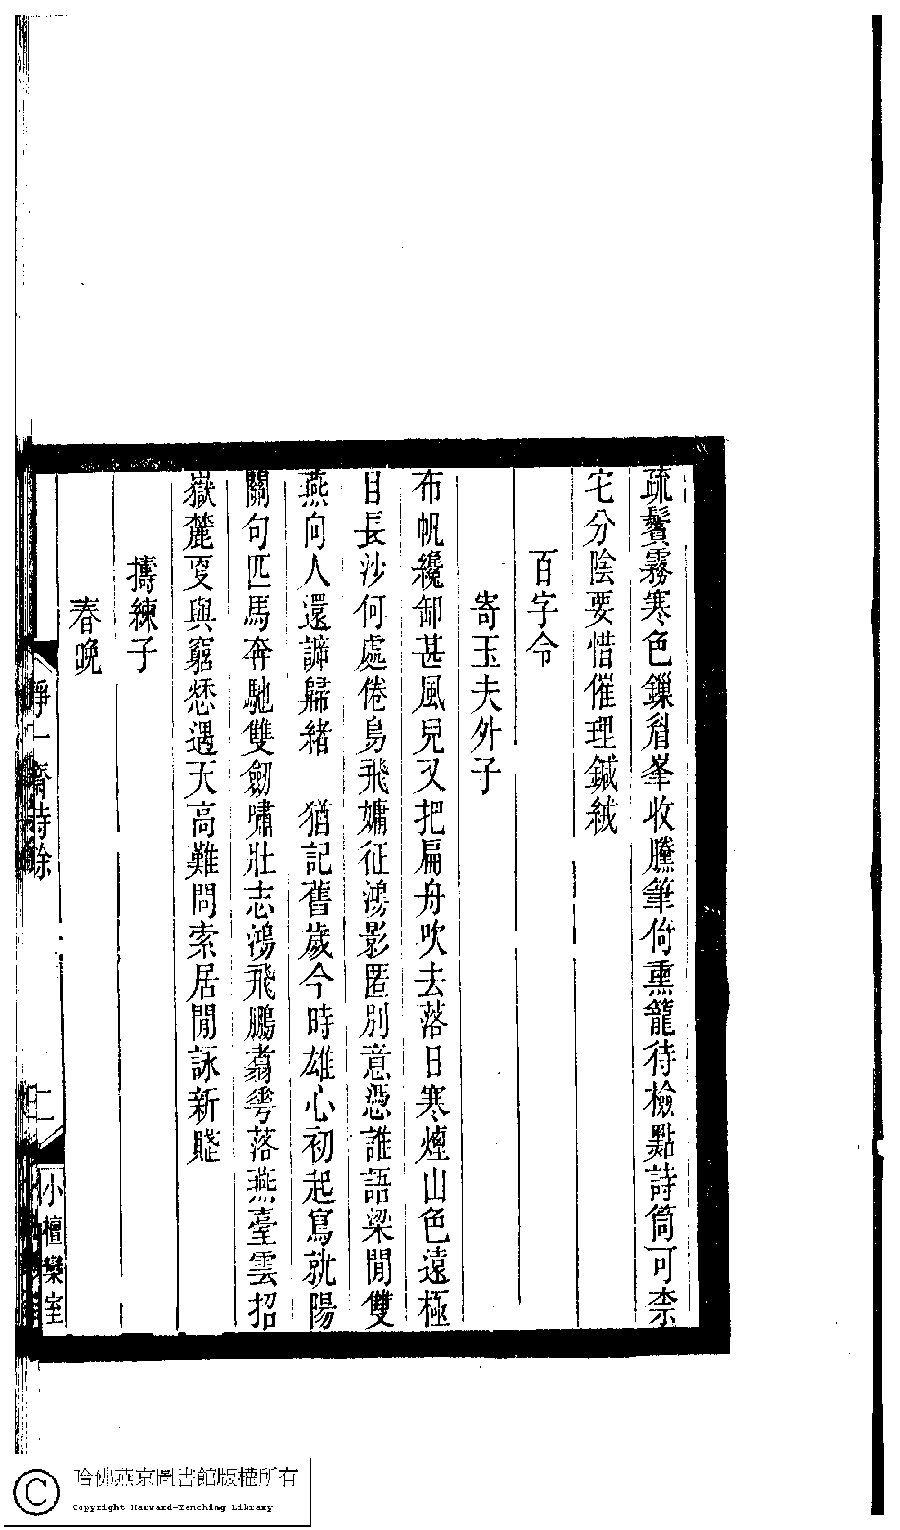 疏鬢霧寒色鏁眉峯收騰筆倚熏籠待檢點詩筒可柰
宅分陰要惜催理鍼絨
百字令
寄玉夫外子
布帆纔卸甚風兒又把扁舟吹去落日寒煙山色遠極
目長沙何處倦鳥飛慵征鴻影匿別意憑誰語梁閒雙
燕向人還諦歸緒　猶記舊歲今時雄心初起寫就陽
關句匹馬奔馳雙劒嘯壯志鴻飛鵬翥雩落燕臺雲招
嶽麓戛與窮愁遇天高難問索居閒詠新
擣練子
春晚
靜一齋詩餘
二
小檀欒室
哈佛燕京圖書館版權所有
Copyright Harvard-Yenching Library